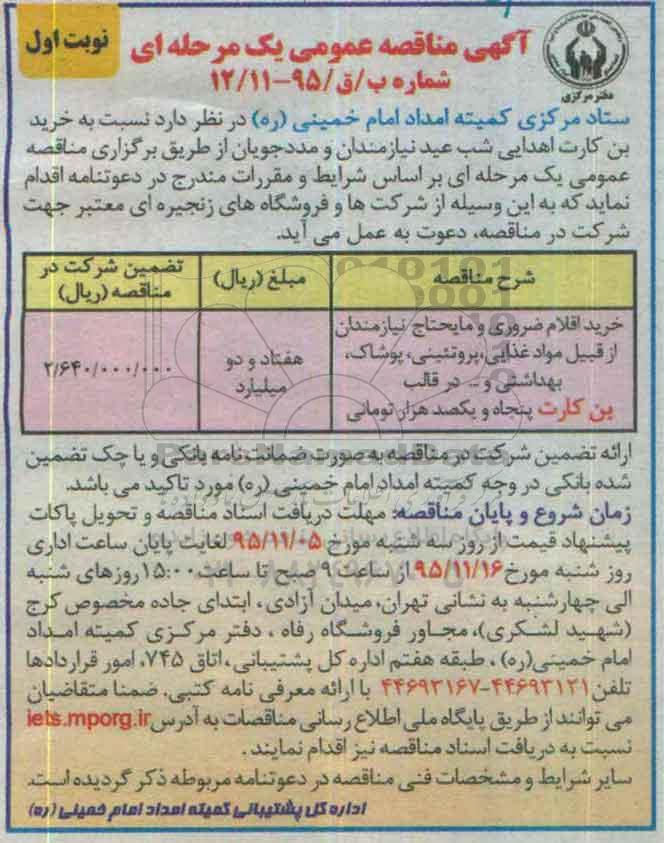 نوبت اول
آگهی مناقصه عمومی یک مرحله ای
شماره ب/ق/۹۵-۱۲/۱۱
دفتر مرکزی
ستاد مرکزی کمیته امداد امام خمینی (ره) در نظر دارد نسبت به خرید
بن کارت اهدایی شب عید نیازمندان و مددجویان از طریق برگزاری مناقصه
عمومی یک مرحله ای بر اساس شرایط و مقررات مندرج در دعوتنامه اقدام
نماید که به این وسیله از شرکت ها و فروشگاه های زنجیره ای معتبر جهت
شرکت در مناقصه، دعوت به عمل می آید.
شرح مناقصه
مبلغ (ریال)
تضمین شرکت در
مناقصه (ریال)
خرید اقلام ضروری و مایحتاج نیازمندان
از قبیل مواد غذایی،پروتئینی، پوشاک،
بهداشتی و ... در قالب
بن کارت پنجاه و یکصد هزار تومانی
هفتاد و دو
میلیارد
۲/۶۴۰/۰۰۰/۰۰۰
ارائه تضمین شرکت در مناقصه به صورت ضمانت نامه بانکی و یا چک تضمین
شده بانکی در وجه کمیته امداد امام خمینی (ره) مورد تاکید می باشد.
زمان شروع و پایان مناقصه: مهلت دریافت اسناد مناقصه و تحویل پاکات
پیشنهاد قیمت از روز سه شنبه مورخ ۹۵/۱۱/۰۵ لغایت پایان ساعت اداری
روز شنبه مورخ ۹۵/۱۱/۱۶ از ساعت ۹ صبح تا ساعت ۱۵:۰۰ روزهای شنبه
الی چهارشنبه به نشانی تهران، میدان آزادی، ابتدای جاده مخصوص کرج
(شهید لشکری)، مجاور فروشگاه رفاه ، دفتر مرکزی کمیته امداد
امام خمینی(ره) ، طبقه هفتم اداره کل پشتیبانی، اتاق ۷۴۵، امور قراردادها
تلفن ۴۴۶۹۳۱۲۱-۴۴۶۹۳۱۶۷ با ارائه معرفی نامه کتبی. ضمنا متقاضیان
می توانند از طریق پایگاه ملی اطلاع رسانی مناقصات به آدرس iets.mporg.ir
نسبت به دریافت اسناد مناقصه نیز اقدام نمایند .
سایر شرایط و مشخصات فنی مناقصه در دعوتنامه مربوطه ذکر گردیده است.
اداره کل پشتیبانی کمیته امداد امام خمینی (ره)